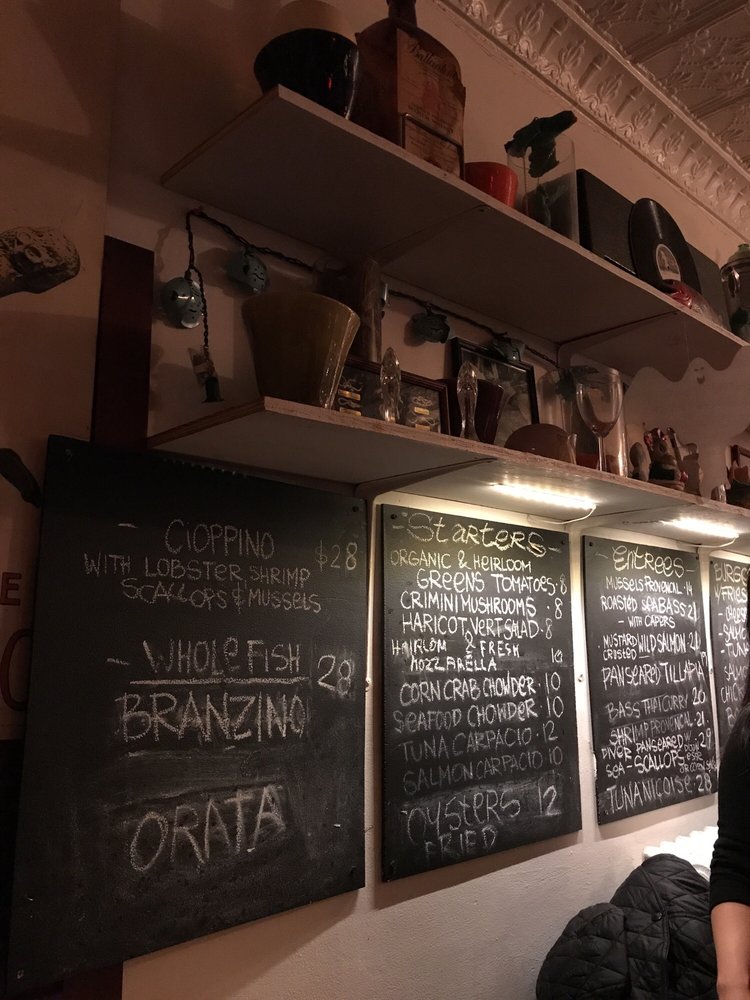 - CIOPPINO $28
WITH LOBSTER SHRIMP
SCALLOPS & MUSSELS
- WHOLE FISH 28
BRANZINO
ORATA
-Starters-
ORGANIC & HEIRLOOM
GREENS TOMATOES 8
CRIMINI MUSHROOMS - 8
HARICOT VERT SALAD - 8
FRESH
MOZZARELLA
CORN CRAB CHOWDER - 10
SEAFOOD CHOWDER - 10
TUNA CARPACIO - 12
SALMON CARPACIO 10
OYSTERS 12
FRIED
-entrees-
MUSSELS PROVENCAL - 14
ROASTED SEABASS 21
- WITH CAPERS
MUSTARD WILD SALMON - 24
CRUSTED
PAN SEARED TILLAPIA
BASS THAI CURRY 20
SHRIMP PROVENCAL 21
DIVER PAN SEARED
SEA - SCALLOPS 29
TUNA NIÇOISE - 28